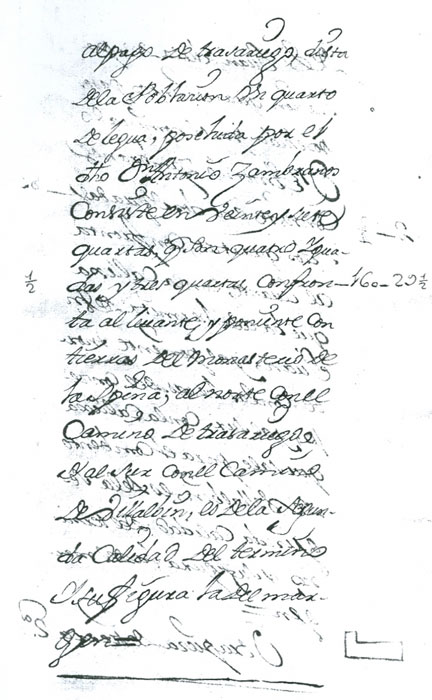 al pago de trasaruego, dista
de la Poblacion Un quarto
de legua, posehida por el
dho Dn Antonio Zambranos
Consiste en Veinte y siete
quartas, q son quatro Igua
½ das y tres quartas, Confron- 160-29½
ta al Lebante, y poniente con
tierras del Monasterio de
la Espina; al norte con el
Camino de trasaruego
Y al Sur con el Camino
de Villalbin, es de la Segun-
da Calidad del termino
Y su figura la del mar-
gen